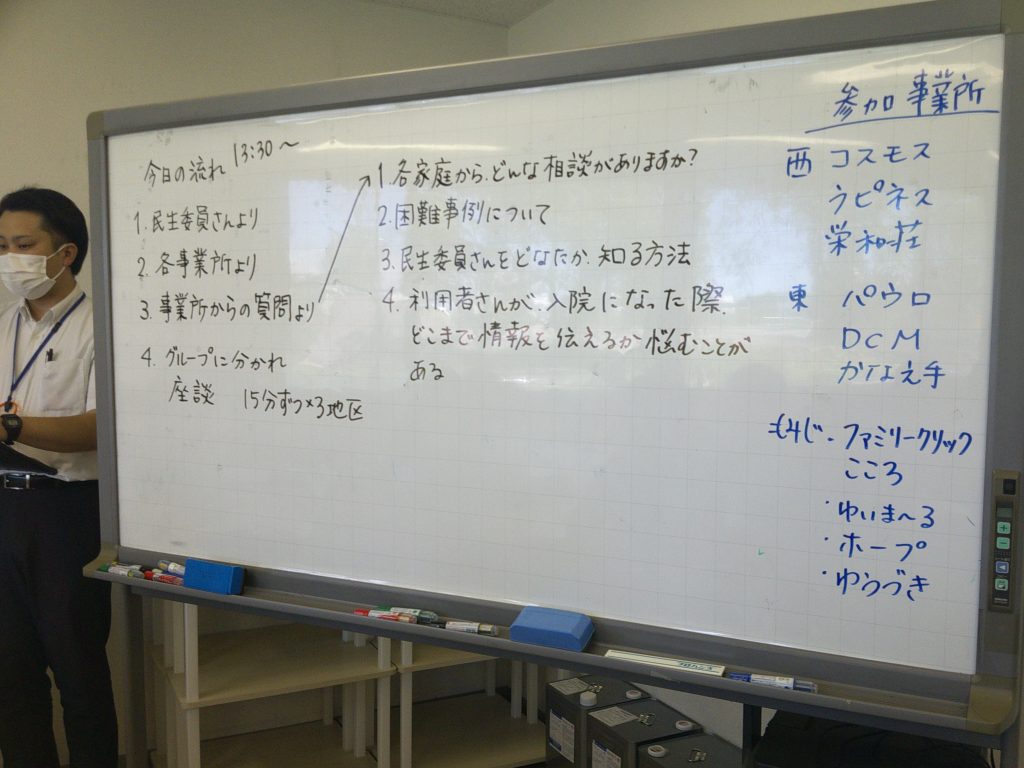 今日の流れ 13:30〜
1. 民生委員さんより
2. 各事業所より
3. 事業所からの質問より
4. グループに分かれ
座談 15分ずつ×3地区
1. 各家庭から、どんな相談がありますか?
2. 困難事例について
3. 民生委員さんをどなたか、知る方法
4. 利用者さんが、入院になった際、
どこまで情報を伝えるか悩むことが
ある
参加事業所
西 コスモス
ラピネス
栄和荘
東 パウロ
DCM
かなえ手
もくじ・ファミリークリック
こころ
・ゆいま〜る
・ホープ
・ゆうづき